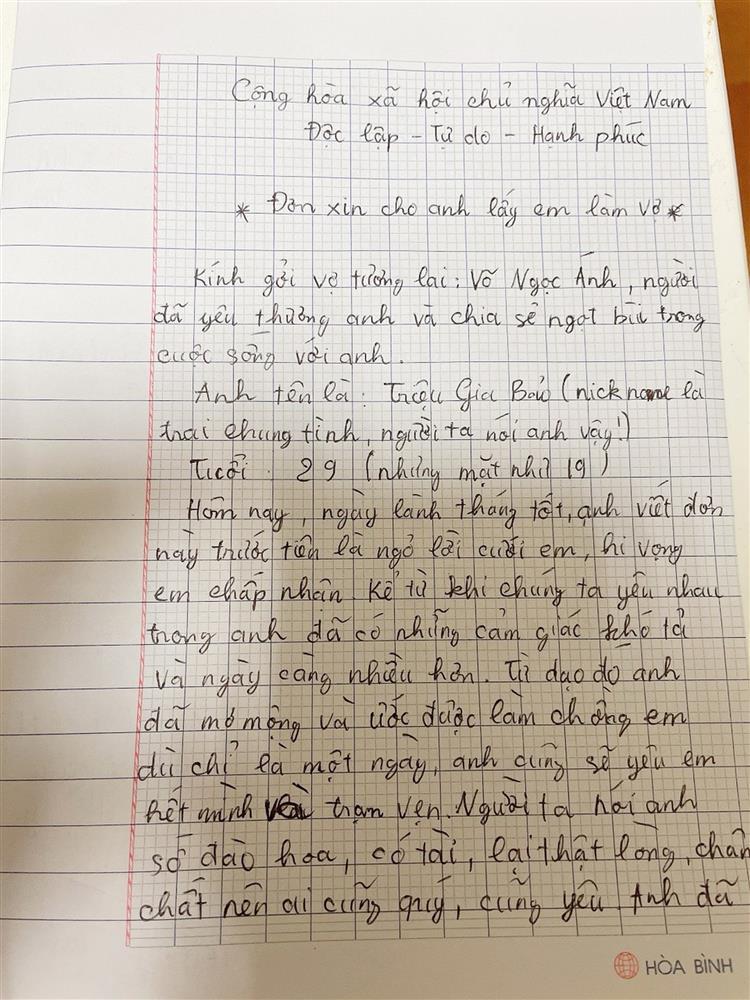 Cộng hòa xã hội chủ nghĩa Việt Nam
Độc lập - Tự do - Hạnh phúc
* Đơn xin cho anh lấy em làm vợ *
Kính gởi vợ tương lai: Võ Ngọc Ánh, người
đã yêu thương anh và chia sẻ ngọt bùi trong
cuộc sống với anh.
Anh tên là: Triệu Gia Bảo (nick name là
trai chung tình, người ta nói anh vậy!)
Tuổi: 29 (nhưng mặt như 19)
Hôm nay, ngày lành tháng tốt, anh viết đơn
này trước tiên là ngỏ lời cưới em, hi vọng
em chấp nhận. Kể từ khi chúng ta yêu nhau
trong anh đã có những cảm giác khó tả
và ngày càng nhiều hơn. Từ dạo đó anh
đã mơ mộng và ước được làm chồng em
dù chỉ là một ngày, anh cũng sẽ yêu em
hết mình và trạm vẹn. Người ta nói anh
số đào hoa, có tài, lại thật lòng, chân
chất nên ai cũng quý, cũng yêu. Anh đã
HÒA BÌNH